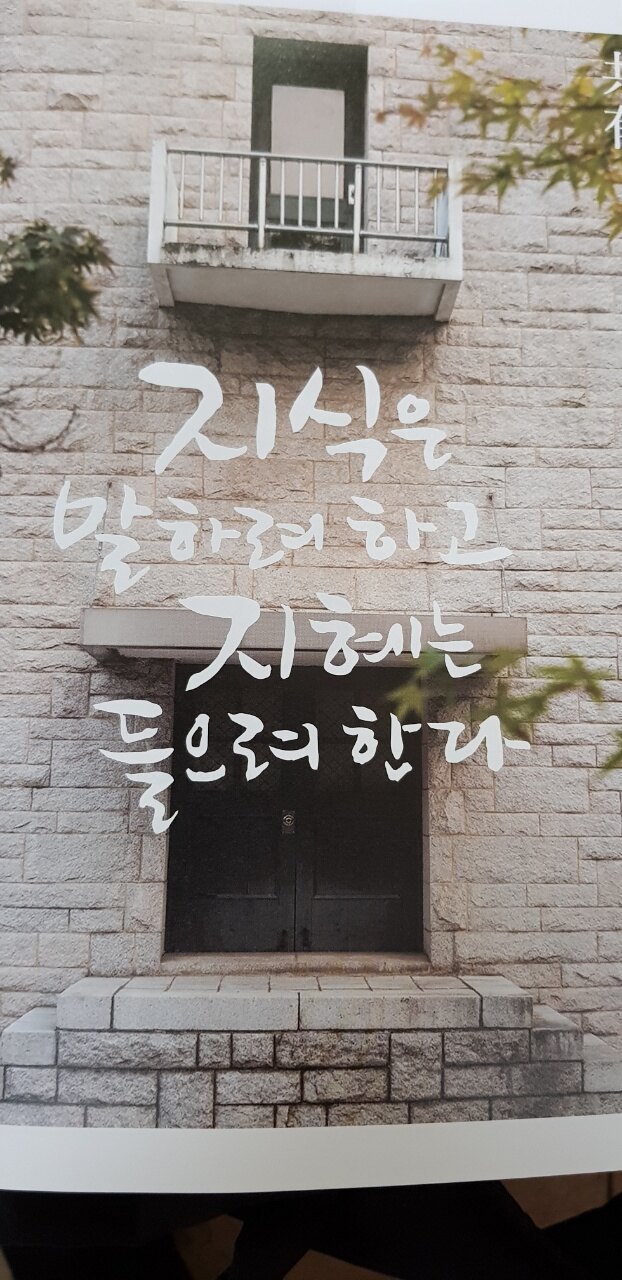 지식은
말하려 하고
지혜는
들으려 한다